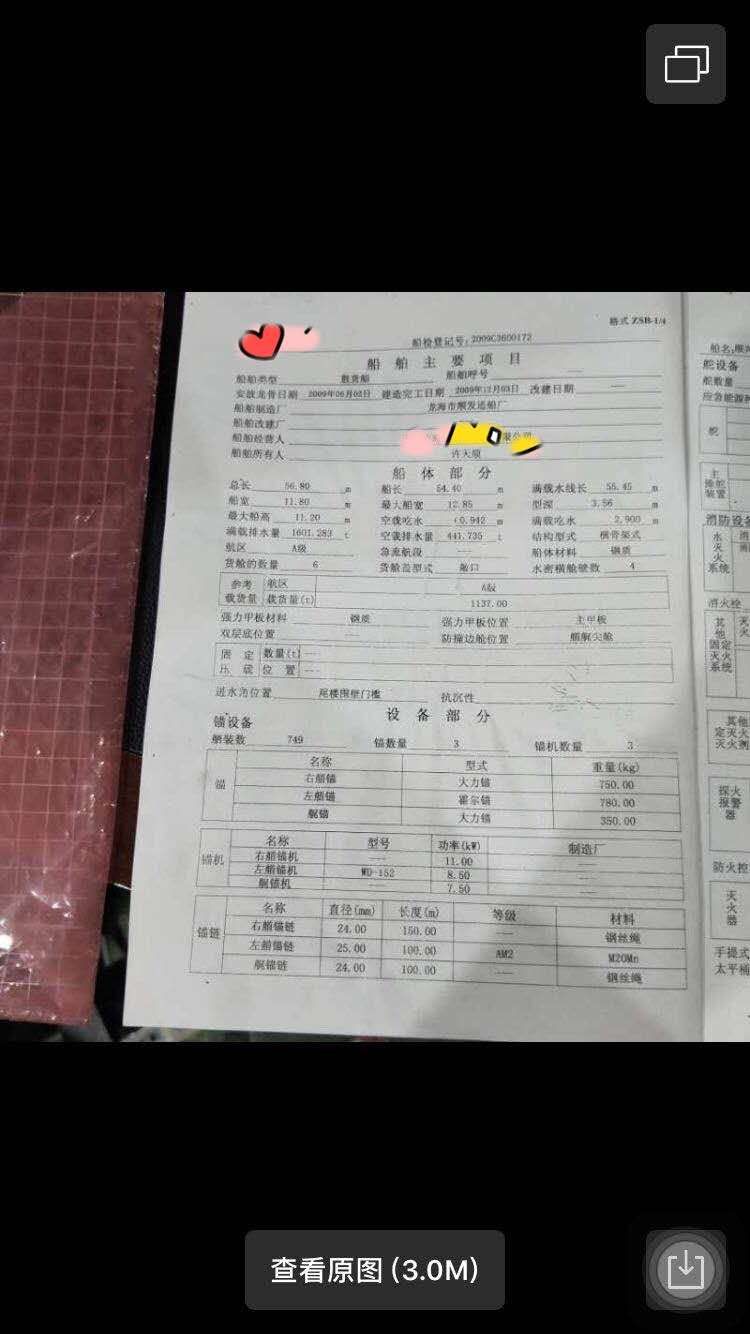 格式 ZSB-1/4
船检登记号:2009C3600172
船舶主要项目
船舶类型 散货船 船舶呼号 ——
安放龙骨日期 2009年06月02日 建造完工日期 2009年12月03日 改建日期 ——
船舶制造厂 龙海市顺发造船厂
船舶改建厂
船舶经营人 限公司
船舶所有人
船体部分
总长 56.80 m 船长 54.40 m 满载水线长 55.45 m
船宽 11.80 m 最大船宽 12.85 m 型深 3.56 m
最大船高 11.20 m 空载吃水 0.942 m 满载吃水 2.900 m
满载排水量 1601.283 t 空载排水量 441.735 t 结构型式 横骨架式
航区 A级 急流航段 --- 船体材料 钢质
货舱的数量 6 货舱盖型式 敞口 水密横舱壁数 4
参考载货量 航区 A级
载货量(t) 1137.00
强力甲板材料 钢质 强力甲板位置 主甲板
双层底位置 --- 防撞边舱位置 艏艉尖舱
固定压载 数量(t) ---
位置 ---
进水角位置 尾楼围壁门槛 抗沉性
设备部分
锚设备
舾装数 749 锚数量 3 锚机数量 3
锚 名称 型式 重量(kg)
右艏锚 大力锚 750.00
左艏锚 霍尔锚 780.00
艉锚 大力锚 350.00
锚机 名称 型号 功率(kW) 制造厂
右艏锚机 --- 11.00 ——
左艏锚机 WD-152 8.50 ——
艉锚机 7.50 ——
锚链 名称 直径(mm) 长度(m) 等级 材料
右艏锚链 24.00 150.00 —— 钢丝绳
左艏锚链 25.00 100.00 AM2 M20Mn
艉锚链 24.00 100.00 —— 钢丝绳
船名:顺
舵设备
舵数量
应急能源
舵
主操舵装置
消防设备
水灭火系统
消火栓
其他固定灭火系统
其他
定灭火
灭火剂
探火报警器
防火控
灭火器
手提式
太平桶
查看原图 (3.0M)